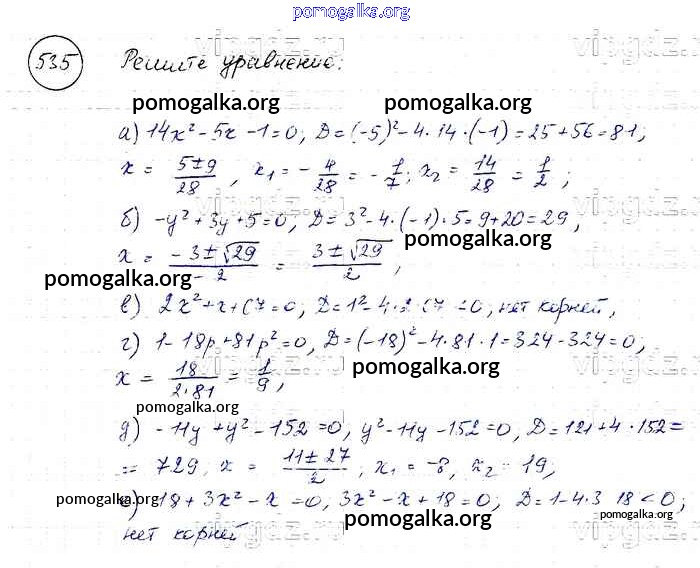 pomogalka.org
vipgdz.ru
535 Решите уравнение:
pomogalka.org pomogalka.org
а) 14x² - 5x - 1 = 0, D = (-5)² - 4·14·(-1) = 25 + 56 = 81;
x = (5±9)/28, x₁ = -4/28 = -1/7; x₂ = 14/28 = 1/2;
б) -y² + 3y + 5 = 0, D = 3² - 4·(-1)·5 = 9 + 20 = 29,
pomogalka.org
x = (-3±√29)/-2 = (3±√29)/2,
pomogalka.org
в) 2x² + x + 67 = 0, D = 1² - 4·2·67 < 0, нет корней,
г) 1 - 18p + 81p² = 0, D = (-18)² - 4·81·1 = 324 - 324 = 0,
x = 18/2·81 = 1/9,
pomogalka.org
pomogalka.org
д) -11y + y² - 152 = 0, y² - 11y - 152 = 0, D = 121 + 4·152 =
= 729, x = (11±27)/2, x₁ = -8, x₂ = 19,
pomogalka.org pomogalka.org
е) 18 + 3x² - x = 0, 3x² - x + 18 = 0, D = 1 - 4·3·18 < 0;
pomogalka.org
нет корней